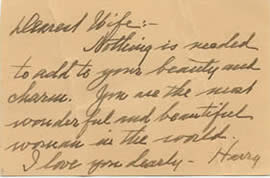 Dearest Wife:-
Nothing is needed
to add to your beauty and
charm. You are the most
wonderful and beautiful
woman in the world.
I love you dearly - Harry